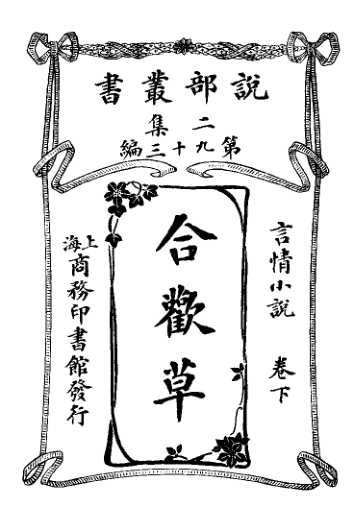 說部叢書
二集
第九十三編
言情小說 卷下
合歡草
上海商務印書館發行